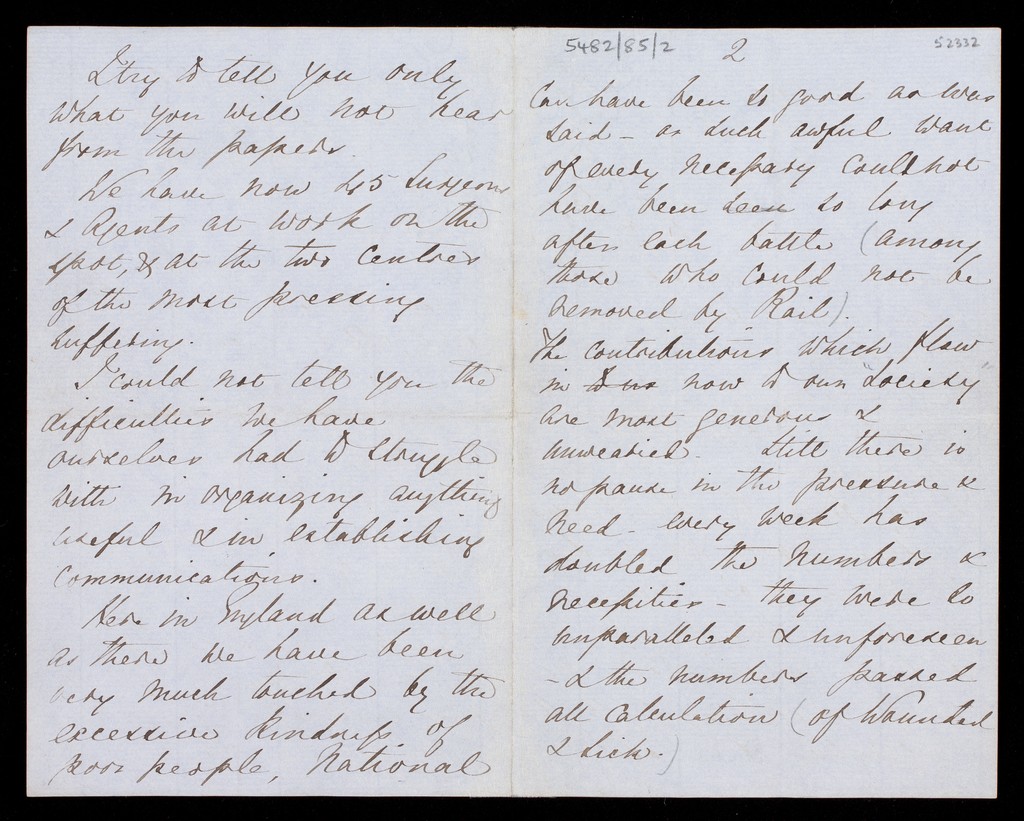 I try to tell you only
what you will not hear
from the papers.
We have now 45 Surgeons
& Agents at work on the
spot, & at the two centres
of the most pressing
suffering.
I could not tell you the
difficulties we have
ourselves had to struggle
with in organizing anything
useful & in establishing
communications.
Here in England as well
as there we have been
very much touched by the
excessive kindness of
poor people, National
5482/85/2
2
52332
can have been so good as was
said - as such awful want
of every necessary could not
have been seen so long
after each battle (among
those who could not be
removed by Rail).
The contributions which flow
in to us now to our "Society"
are most generous &
unwearied - Still there is
no pause in the pressure &
need - every week has
doubled the numbers &
necessities - they were so
unparalleled & unforeseen
- & the numbers passed
all calculation (of Wounded
& Sick.)